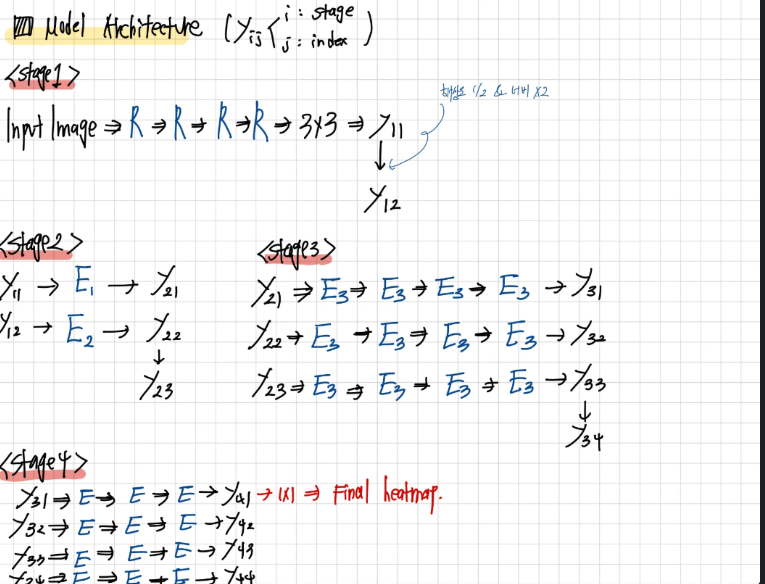 Model Architecture (y_ij < i : stage
j : index )
<stage1>
Input Image ⇒ R ⇒ R → R → R → 3x3 ⇒ y11
해상도 1/2 & 너비 x2
↓
y12
<stage2>
y11 → E1 → y21
y12 → E2 → y22
↓
y23
<stage3>
y21 ⇒ E3 → E3 → E3 → E3 → y31
y22 → E3 → E3 → E3 → E3 → y32
y23 ⇒ E3 ⇒ E3 → E3 → E3 → y33
↓
y34
<stage4>
y31 ⇒ E → E → E → y41 → 1x1 ⇒ Final heatmap.
y32 → E → E → E → y42
y33 ⇒ E ⇒ E → E → y43
y34 ⇒ E ⇒ E → E → y44